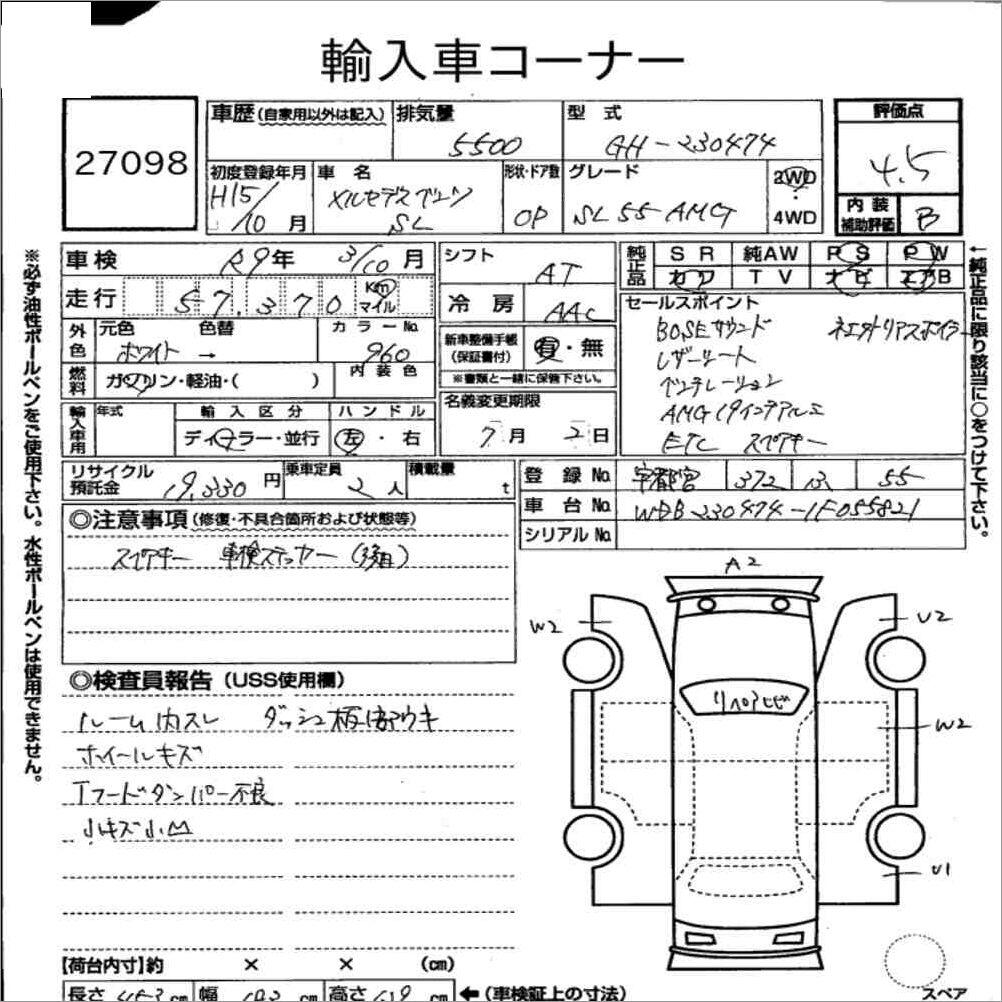 輸入車コーナー
27098
車歴(自家用以外は記入)
排気量
5500
型式
GH-230474
評価点
4.5
初度登録年月
H15/10月
車名
メルセデスベンツ
SL
形状・ドア数
OP
グレード
SL55 AMG
2WD
・
4WD
内装
補助評価
B
車検
R9年 3/10月
走行
57,370
Km
マイル
シフト
AT
冷房
AAC
純正品
SR 純AW PS PW
カワ TV ナビ エアB
外色
元色 色替
ホワイト →
カラーNo.
960
燃料
ガソリン・軽油・( )
内装色
輸入車用
年式
輸入区分
ディーラー・並行
ハンドル
左・右
新車整備手帳
(保証書付)
有・無
※書類と一緒に保備下さい。
名義変更期限
7月 2日
セールスポイント
BOSEサウンド
レザーシート
ベンチレーション
AMG19インチアルミ
ETC スペアキー
リサイクル
預託金
19,330円
乗車定員
2人
積載量
t
登録No.
宇都宮 372 55
車台No.
WDB230474-1F055821
シリアルNo.
◎注意事項(修復・不具合箇所および状態等)
スペアキー 車検ステッカー
◎検査員報告(USS使用欄)
ルーム内スレ ダッシュ板部ウキ
ホイールキズ
Fフードダンパー不良
小キズ小凹
A2
W2
U2
リペアヒビ
W2
U1
スペア
【荷台内寸】約 × × (cm)
長さ 453 cm 幅 cm 高さ cm
←(車検証上の寸法)
※必ず油性ボールペンをご使用下さい。水性ボールペンは使用できません。
←純正品に限り該当に○をつけて下さい。